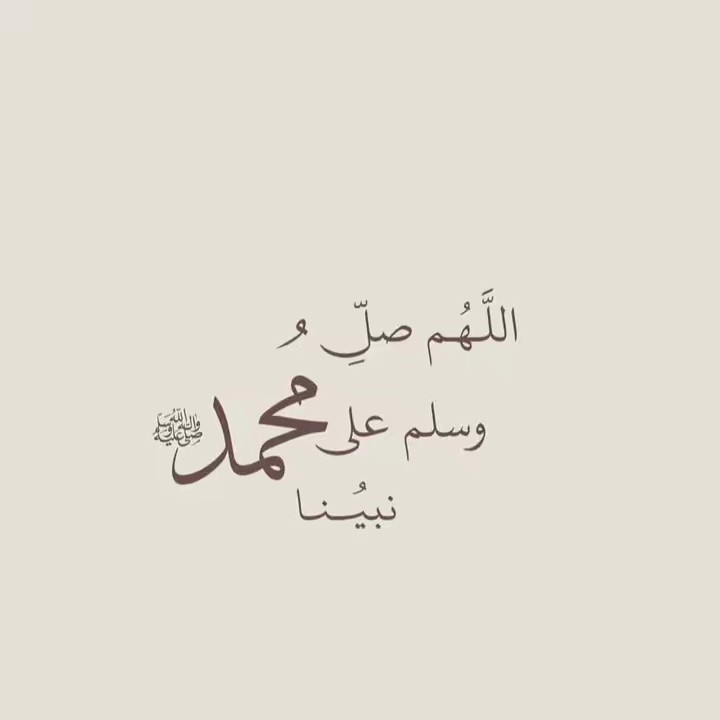 اللَّهُم صلِّ
وسلم على
نبيُنا
محمد ﷺ